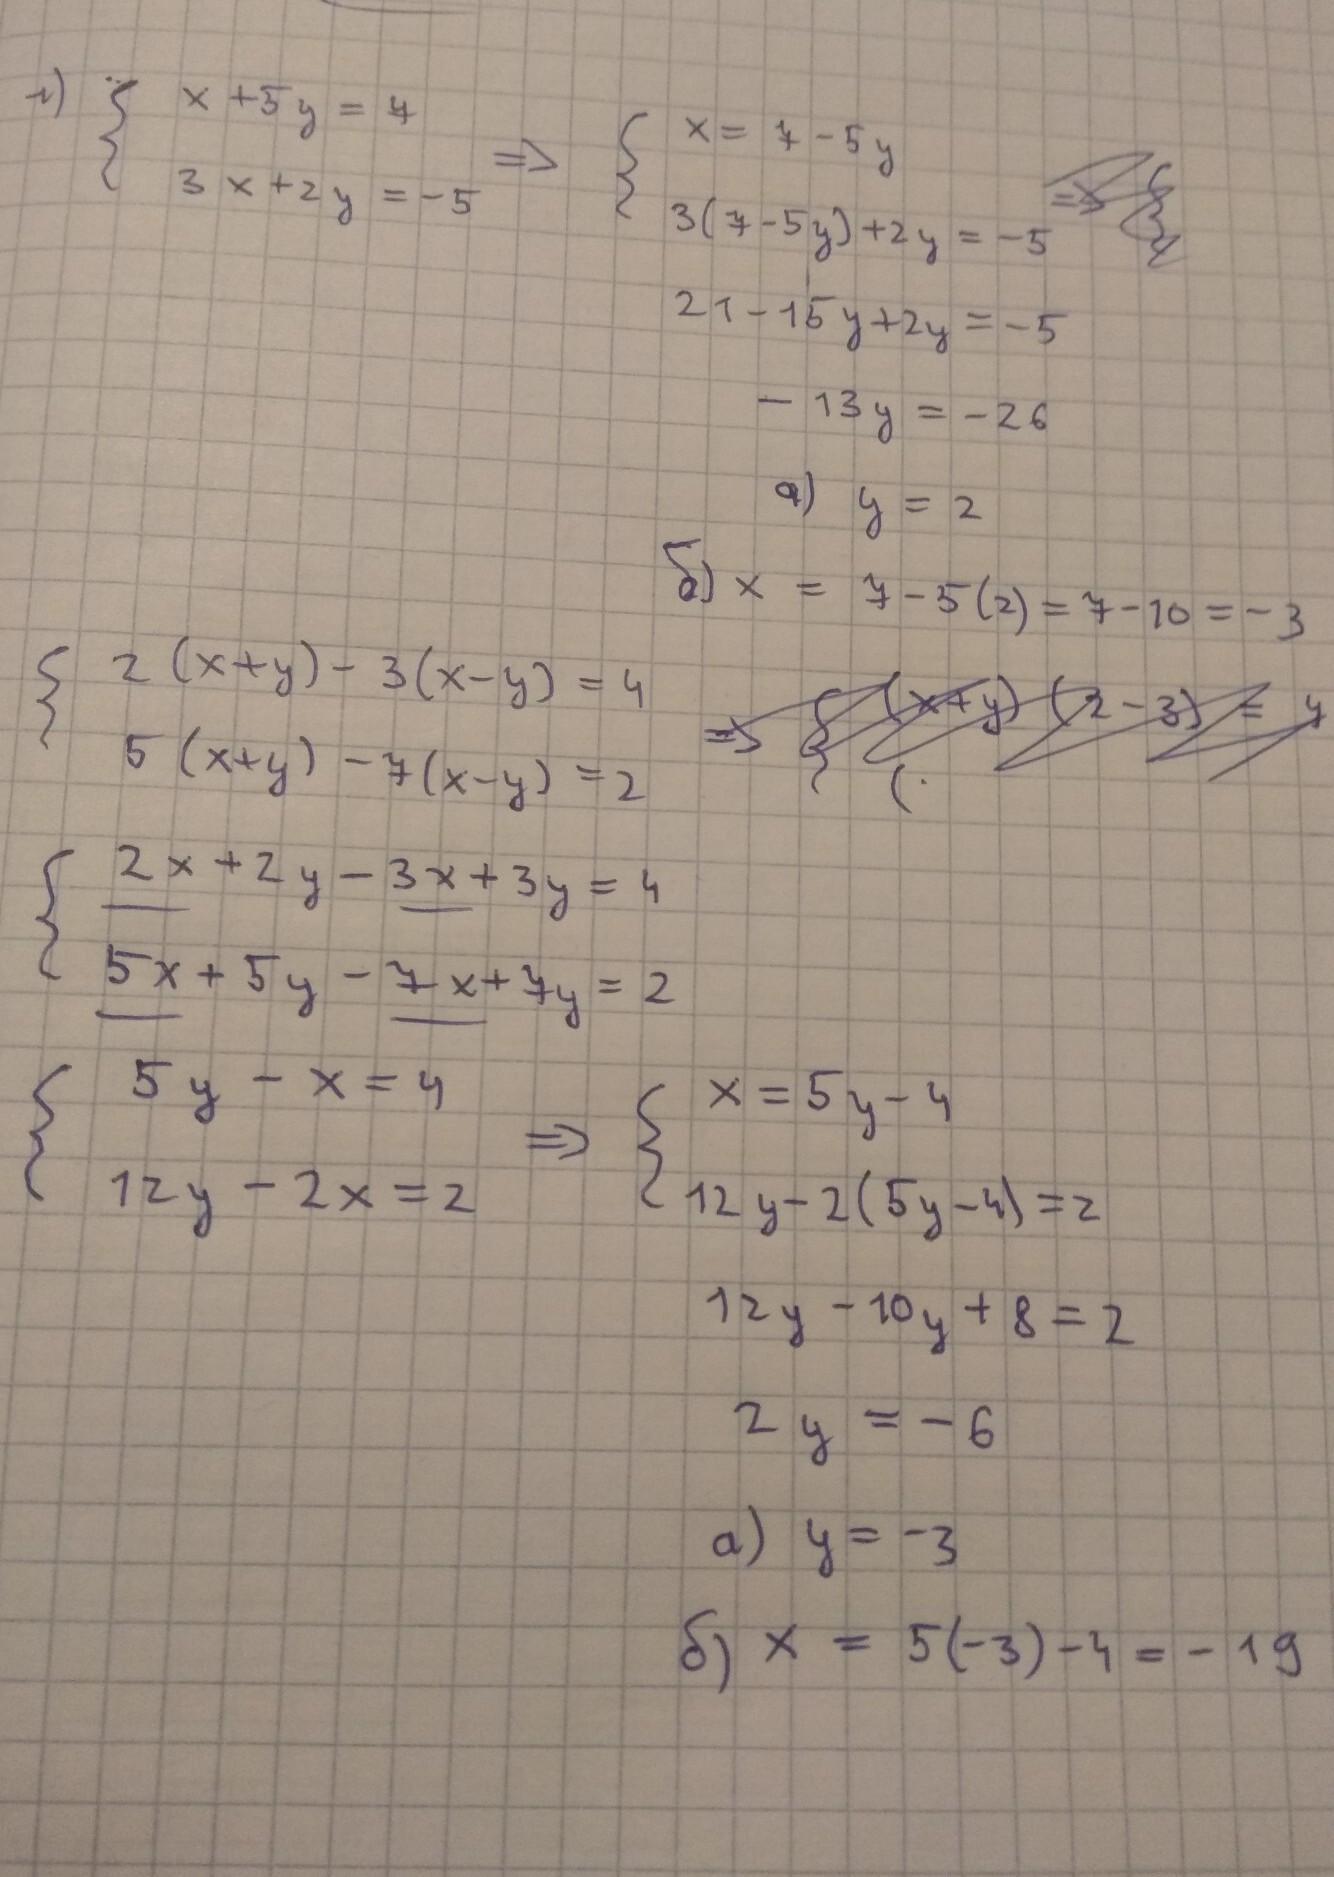 1) { x + 5y = 7
3x + 2y = -5 =>
{ x = 7 - 5y
3(7 - 5y) + 2y = -5 =>
21 - 15y + 2y = -5
- 13y = -26
а) y = 2
б) x = 7 - 5(2) = 7 - 10 = -3
{ 2(x+y) - 3(x-y) = 4
5(x+y) - 7(x-y) = 2 =>
{ (x+y) (2-3) = 4
(
{ 2x + 2y - 3x + 3y = 4
5x + 5y - 7x + 7y = 2
{ 5y - x = 4
12y - 2x = 2 =>
{ x = 5y - 4
12y - 2(5y - 4) = 2
12y - 10y + 8 = 2
2y = -6
а) y = -3
б) x = 5(-3) - 4 = -19